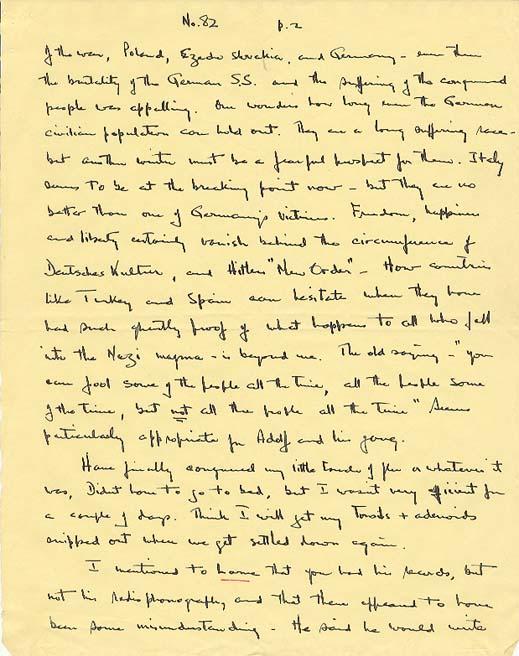 No. 82 p. 2
of the war, Poland, Czechoslovakia, and Germany - even then
the brutality of the German S.S. and the suffering of the conquered
people was appalling. One wonders how long even the German
civilian population can hold out. They are a long suffering race -
but another winter must be a fearful prospect for them. Italy
seems to be at the breaking point now - but they are no
better than one of Germany's victims. Freedom, happiness
and liberty certainly vanish behind the circumference of
Deutsches Kultur, and Hitler's "New Order" - How countries
like Turkey and Spain can hesitate when they have
had such ghastly proof of what happens to all who fall
into the Nazi - is beyond me. The old saying - "you
can fool some of the people all the time, all the people some
of the time, but not all the people all the time" seems
particularly appropriate for Adolf and his gang.
Have finally conquered my little touch of flu or whatever it
was, Didnt have to go to bed, but I wasn't very efficient for
a couple of days. Think I will get my tonsils + adenoids
snipped out when we get settled down again.
I mentioned to that you had his records, but
not his radiophonograph, and that there appeared to have
been some misunderstanding - He said he would write